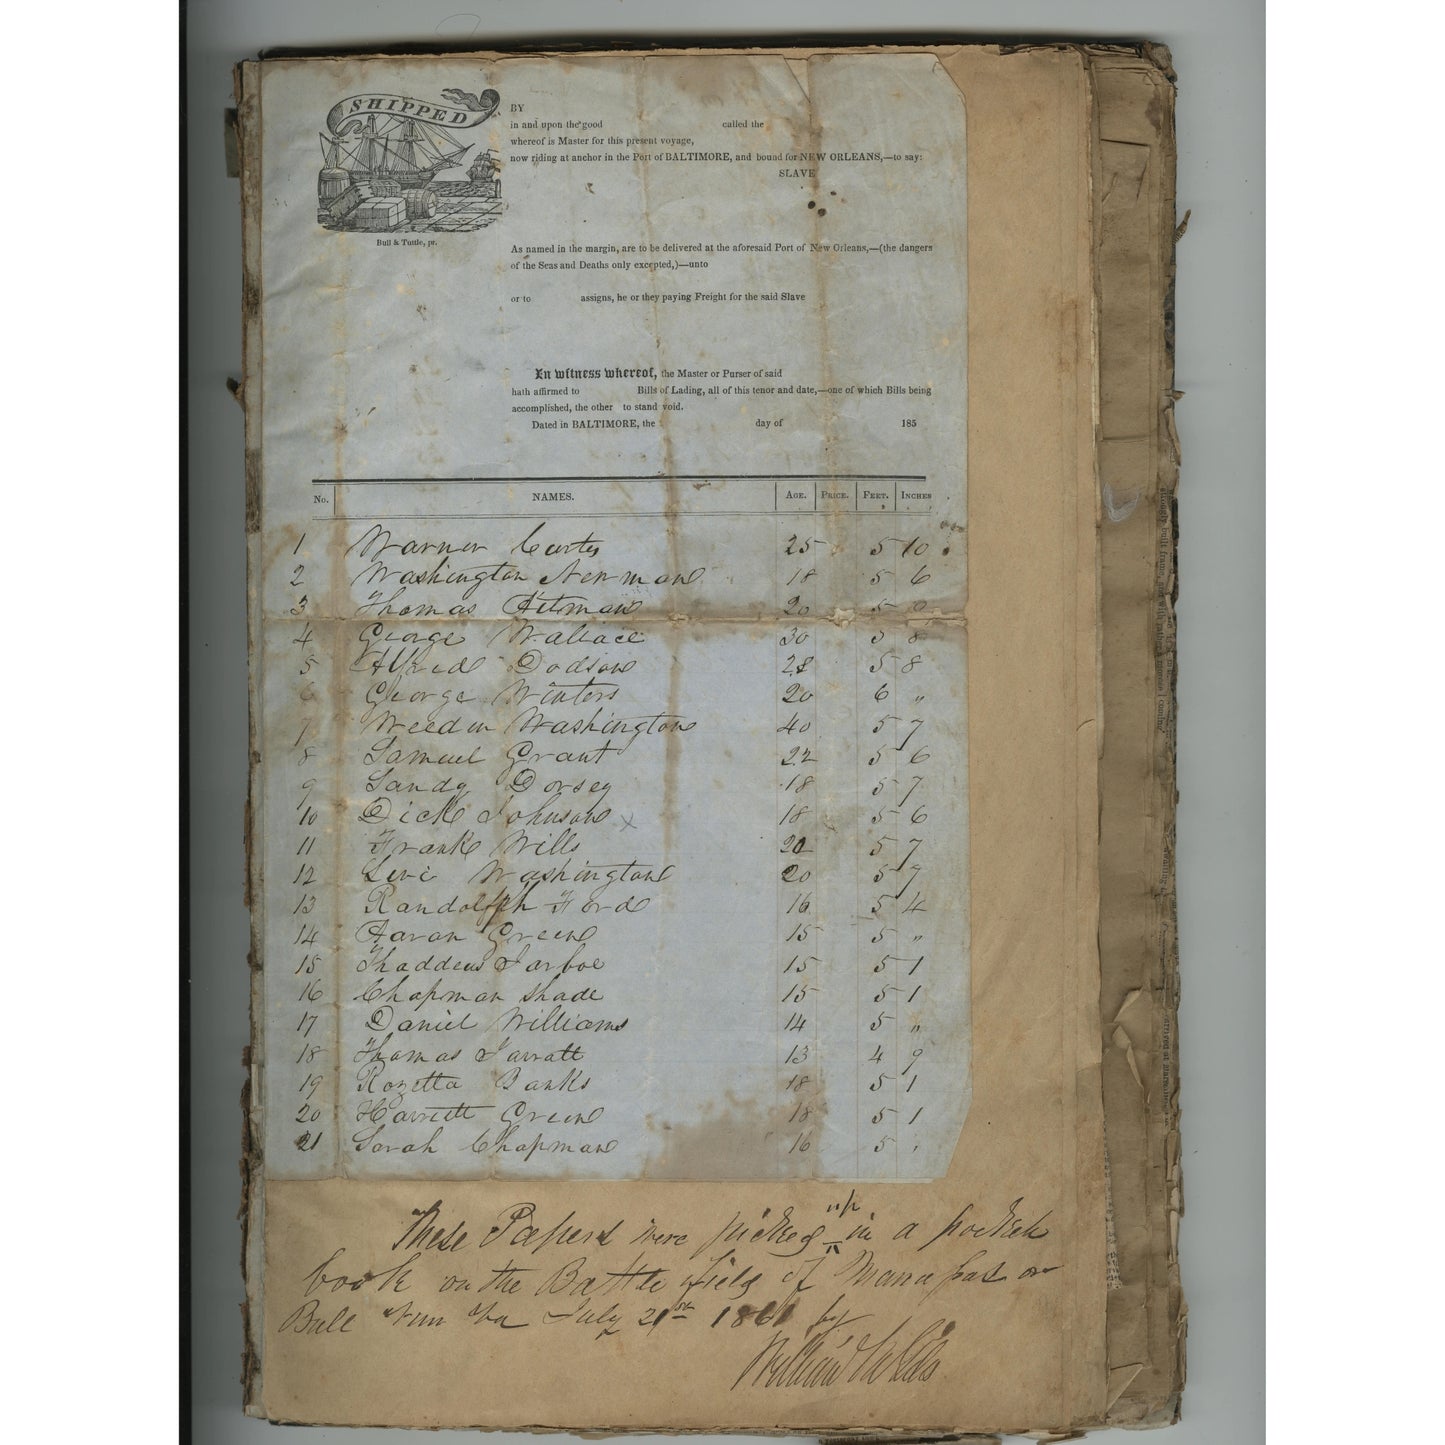 SHIPPED
BY
in and upon the good called the
whereof is Master for this present voyage,
now riding at anchor in the Port of BALTIMORE, and bound for NEW ORLEANS,—to say:
SLAVE
Bull & Tuttle, pr.
As named in the margin, are to be delivered at the aforesaid Port of New Orleans,—(the dangers
of the Seas and Deaths only excepted,)—unto
or to assigns, he or they paying Freight for the said Slave
In witness whereof, the Master or Purser of said
hath affirmed to Bills of Lading, all of this tenor and date,—one of which Bills being
accomplished, the other to stand void.
Dated in BALTIMORE, the day of 185
No. NAMES. AGE. PRICE. FEET. INCHES
1 Warner Curtis 25 5 10
2 Washington Newman 18 5 6
3 Thomas 20 5
4 George Wallace 30 5 8
5 Alfred Dodson 28 5 8
6 George Winters 20 6 "
7 Weedin Washington 40 5 7
8 Samuel Grant 22 5 6
9 Sandy Dorsey 18 5 7
10 Dick Johnson x 18 5 6
11 Frank Wills 20 5 7
12 Levi Washington 20 5 7
13 Randolph Ford 16 5 4
14 Aaron Green 15 5 "
15 Thaddeus Jarboe 15 5 1
16 Chapman Shade 15 5 1
17 Daniel Williams 14 5 "
18 Thomas Jarratt 13 4 9
19 Rozetta Banks 18 5 1
20 Harriett Green 18 5 1
21 Sarah Chapman 16 5 "
These Papers were picked up in a pocket
book on the Battle field of Manassas or
Bull Run Va July 21st 1861 by
William